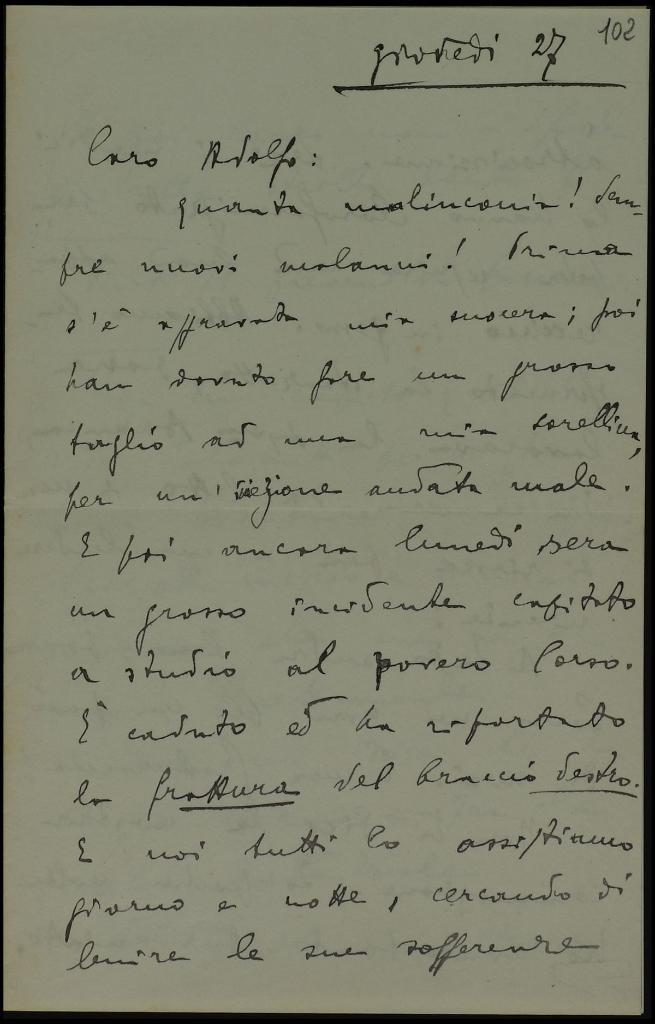 102
giovedì 27
Caro Adolfo:
quanta malinconia! Sem-
pre nuovi malanni! Prima
s'è aggravata mia suocera; poi
han dovuto fare un grosso
taglio ad una mia sorellina,
per un'iniezione andata male.
E poi ancora lunedì sera
un grosso incidente capitato
a studio al povero Corso.
È caduto ed ha riportato
la frattura del braccio destro.
E noi tutti lo assistiamo
giorno e notte, cercando di
lenire le sue sofferenze